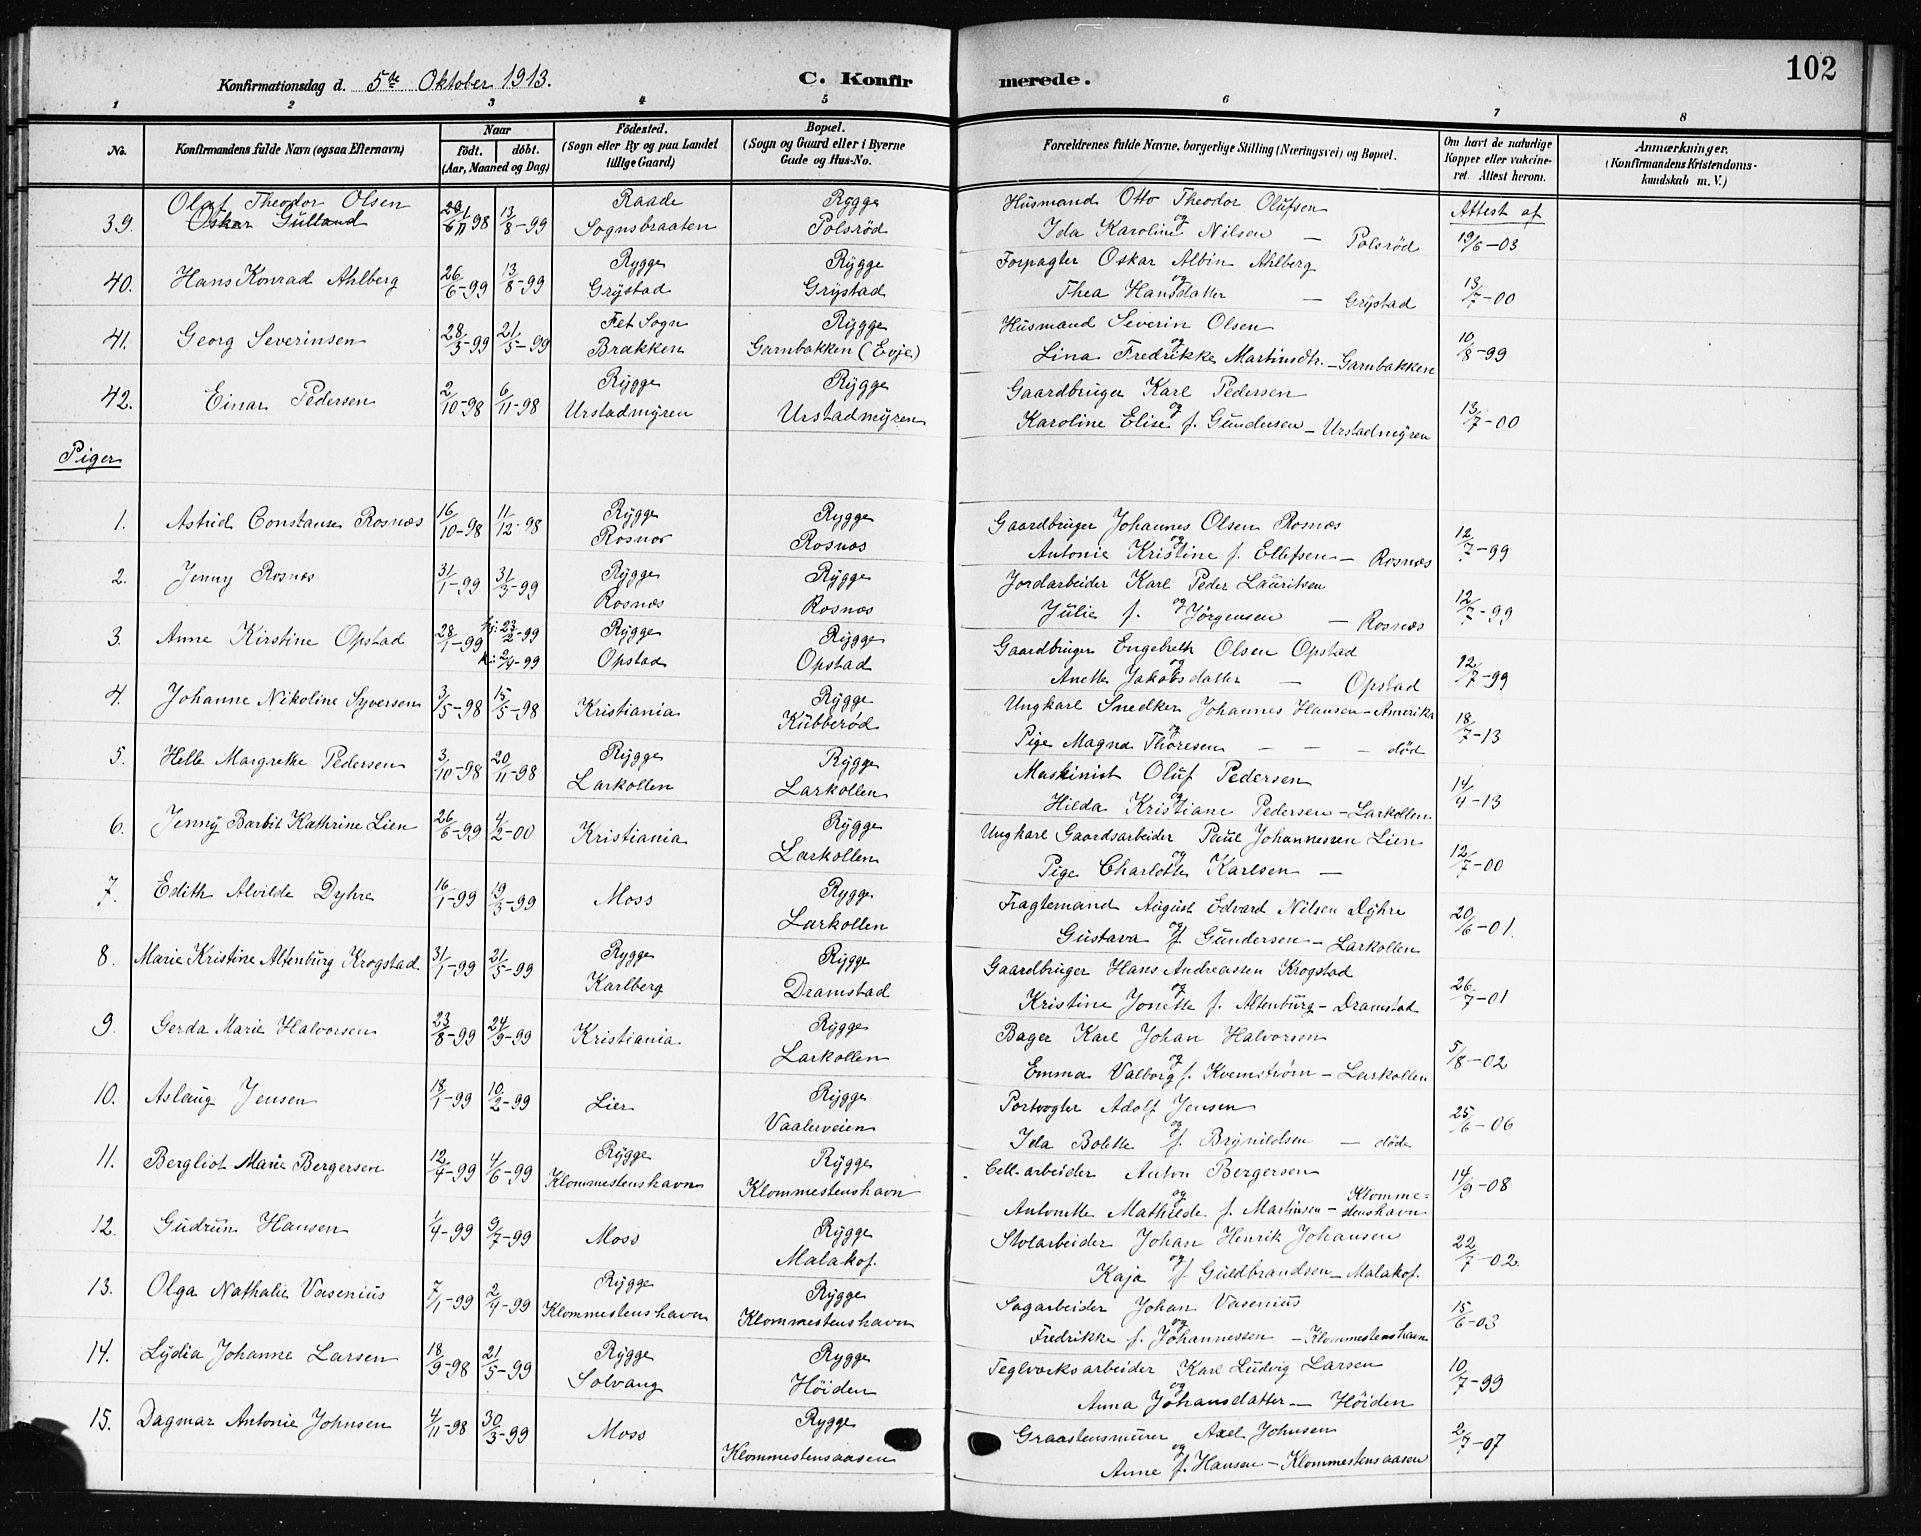 102
Konfirmationsdag d. 5te Oktober 1913. C. Konfirmerede.
1 2 3 4 5 6 7 8
No.
Konfirmandens fulde Navn (ogsaa Efternavn)
Naar
født. døbt.
(Aar, Maaned og Dag)
Fødested.
(Sogn eller By og paa Landet
tillige Gaard)
Bopæl.
(Sogn og Gaard eller i Byerne
Gade og Hus-No.
Forældrenes fulde Navne, borgerlige Stilling (Næringsvei) og Bopæl.
Om havt de naturlige
Kopper eller vakcine-
ret. Attest herom.
Anmærkninger.
(Konfirmandens Kristendoms-
kundskab m. V.)
Olaf Theodor Olsen Raade Rygge Husmand Otto Theodor Olufsen Attest af
39. Oskar Gulland 6/11 98 13/8-99 Sognsbraaten Polsrød og Ida Karoline Nilsen — Polsrød 19/6-03
Rygge Rygge Forpagter Oskar Albin Ahlberg
40. Hans Konrad Ahlberg 26/6-99 13/8-99 Grystad Grystad og Thea Hansdatter — Grystad 13/7-00
Fet Sogn Rygge Husmand Severin Olsen
41. Georg Severinsen 28/3-99 21/5-99 Brakken Garnbakken (Evje) og Lina Fredrikke Martinsdtr. - Garnbakken 10/8-99
Rygge Rygge Gaardbruger Karl Pedersen
42. Einar Pedersen 2/10-98 6/11-98 Urstadmyren Urstadmyren og Karoline Elise f. Gundersen - Urstadmyren 13/7-00
Piger
Rygge Rygge Gaardbruger Johannes Olsen Rosnæs
1. Astrid Constanse Rosnæs 16/10-98 11/12-98 Rosnor Rosnæs og Antonie Kristine f. Ellefsen - Rosnæs 12/7-99
Rygge Rygge Jordarbeider Karl Peder Lauritsen
2. Jenny Rosnæs 31/1-99 31/3-99 Rosnæs Rosnæs og Julie f. Jørgensen — Rosnæs 12/7-99
23/2-99 Rygge Rygge Gaardbruger Engebreth Olsen Opstad
3. Anne Kirstine Opstad 28/1-99 2/4-99 Opstad Opstad og Anette Jakobsdatter — Opstad 12/7-99
Rygge Ungkarl Snedker Johannes Hansen - Amerika
4. Johanne Nikoline Syversen 3/5-98 15/5-98 Kristiania Kubberød og Pige Magna Thoresen — — — død 18/7-13
Rygge Rygge Maskinist Oluf Pedersen
5. Helle Margrethe Pedersen 3/10-98 20/11-98 Larkollen Larkollen og Hilda Kristiane Pedersen - Larkollen 14/4-13
Rygge Ungkarl Gaardsarbeider Paul Johannessen Lien
6. Jenny Barbit Kathrine Lien 26/6-99 4/2-00 Kristiania Larkollen og Pige Charlotte Karlsen — 12/7-00
Rygge Fragtemand August Edvard Nilsen Dyhre
7. Edith Alvilde Dyhre 16/1-99 19/3-99 Moss Larkollen og Gustava f. Gundersen - Larkollen 20/6-01.
Rygge Rygge Gaardbruger Hans Andreassen Krogstad
8. Marie Kristine Altenburg Krogstad 31/1-99 21/5-99 Karlberg Dramstad og Kristine Jonette f. Altenburg - Dramstad 26/7-01
Rygge Bager Karl Johan Halvorsen
9. Gerda Marie Halvorsen 23/8-99 24/9-99 Kristiania Larkollen og Emma Valborg f. Kvernstrøm - Larkollen 5/8-02
Rygge Portvogter Adolf Jensen
10. Aslaug Jensen 18/1-99 10/2-99 Lier Vaalerveien og Ida Bolette f. Brynildsen — døde 25/6-06
Rygge Rygge Cell-arbeider Anton Bergersen
11. Bergliot Marie Bergersen 12/4-99 4/6-99 Klommestenshavn Klommestenshavn og Antonette Mathilde f. Martinsen - Klomme=stenshavn 14/9-08
Rygge Stolarbeider Johan Henrik Johansen
12. Gudrun Hansen 1/4-99 9/7-99 Moss Malakof. og Kaja f. Guldbrandsen - Malakof. 22/7-02
Rygge Rygge Sagarbeider Johan Vasenius
13. Olga Nathalie Vasenius 7/1-99 2/4-99 Klommestenshavn Klommestenshavn og Fredrikke f. Johannessen - Klommestenshavn 15/6-03
Rygge Rygge Teglverksarbeider Karl Ludvig Larsen
14. Lydia Johanne Larsen 18/9-98 21/5-99 Solvang Høiden og Anna Johansdatter — Høiden 10/7-99
Rygge Graastensmurer Axel Johnsen
15. Dagmar Antonie Johnsen 4/11-98 30/3-99 Moss Klommestensaasen og Anne f. Hansen - Klommestensaasen 2/7-07